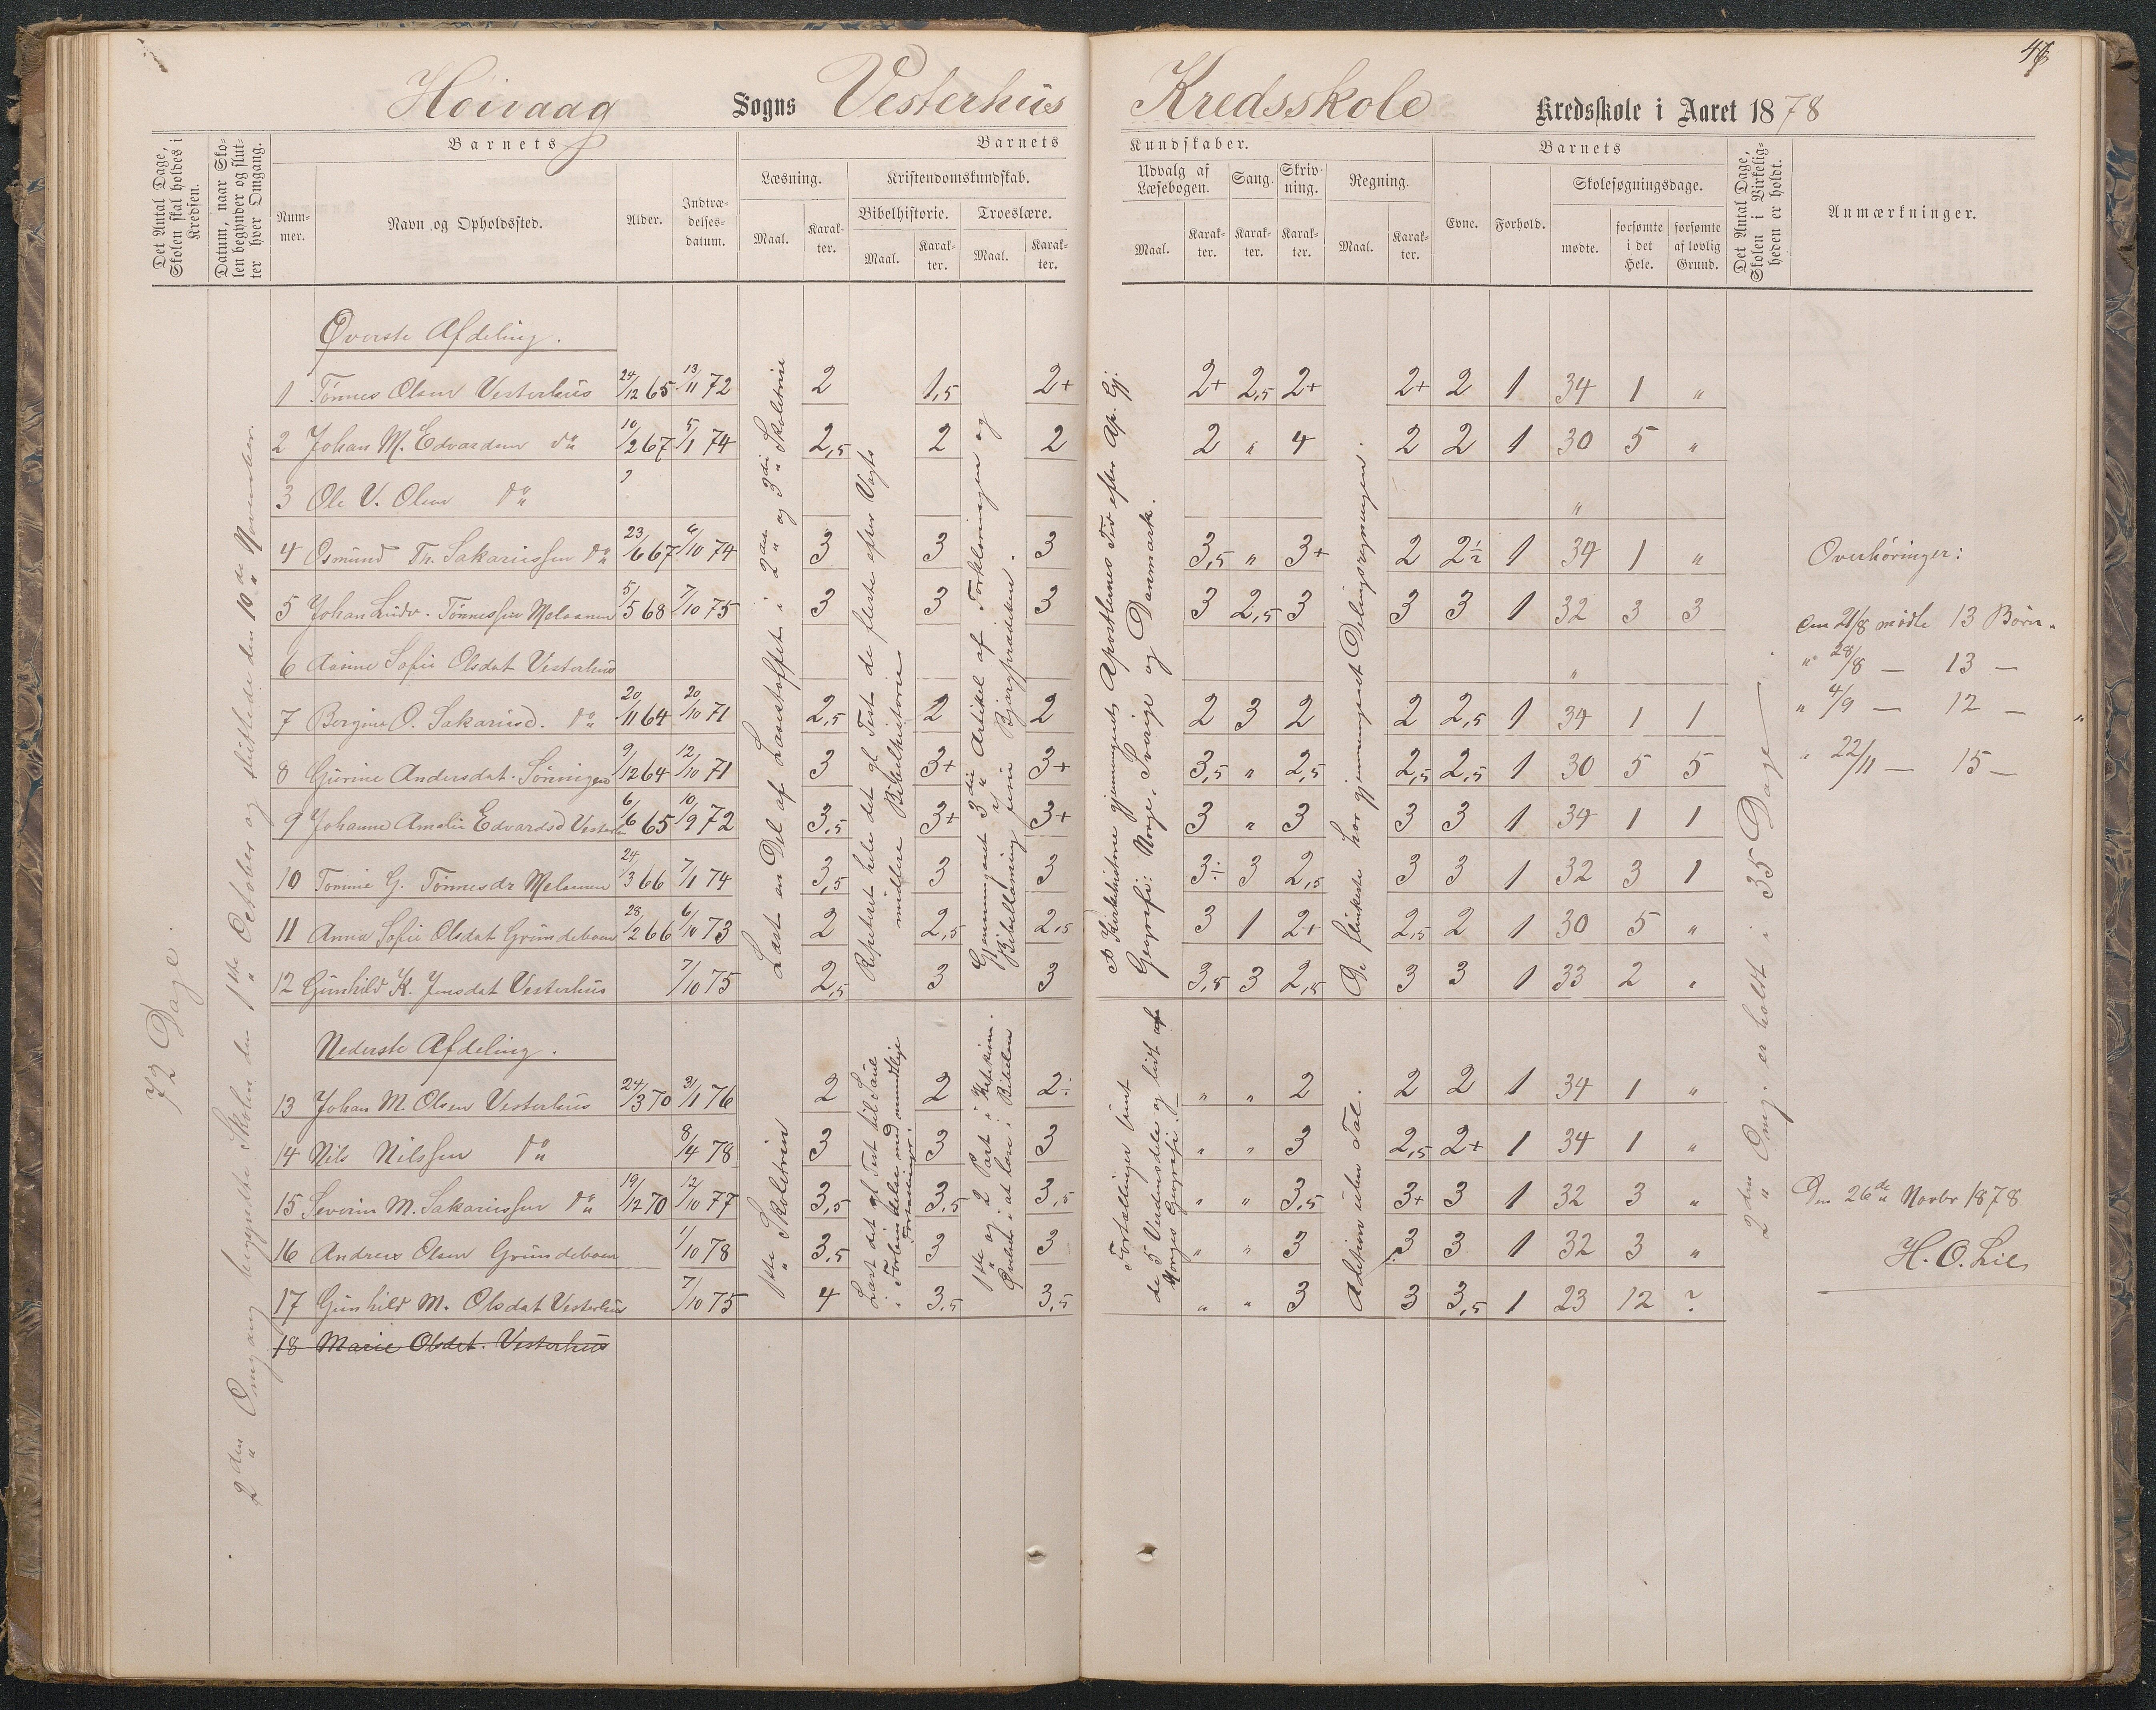 46
Høivaag Sogns Vesterhus Kredsskole Kredsskole i Aaret 1878
Det Antal Dage, Skolen skal holdes i Kredsen.
Datum, naar Skolen begynder og slutter hver Omgang.
Barnets
Nummer.
Navn og Opholdssted.
Alder.
Indtrædelsesdatum.
Barnets Kundskaber.
Læsning.
Maal.
Karakter.
Kristendomskundskab.
Bibelhistorie.
Maal.
Karakter.
Troeslære.
Maal.
Karakter.
Udvalg af Læsebogen.
Maal.
Karakter.
Sang.
Karakter.
Skrivning.
Karakter.
Regning.
Maal.
Karakter.
Barnets
Evne.
Forhold.
Skolesøgningsdage.
mødte.
forsømte i det Hele.
forsømte af lovlig Grund.
Det Antal Dage, Skolen i Virkeligheden er holdt.
Anmærkninger.
72 Dage.
2den Omgang begyndte Skolen den 1ste October og sluttede den 10de November.
Øverste Afdeling.
1 Tønnes Olsen Vesterhus 24/12 65 13/11 72 2 1,5 2+ 2+ 2,5 2+ 2+ 2 1 34 1 "
2 Johan M. Edvardsen do 10/2 67 5/1 74 2,5 2 2 2 " 4 2 2 1 30 5 "
3 Ole V. Olsen do "
4 Osmund Th. Sakariassen do 23/6 67 6/10 74 3 3 3 3,5 " 3+ 2 2½ 1 34 1 "
5 Johan Ludv. Tønnessen Moloanen 5/5 68 7/10 75 3 3 3 3 2,5 3 3 3 1 32 3 3
6 Aasine Sofie Olsdat Vesterhus "
7 Bergine O. Sakariasd. do 20/11 64 20/10 71 2,5 2 2 2 3 2 2 2,5 1 34 1 1
8 Gurine Andersdat. Sønningen 9/12 64 12/10 71 3 3+ 3+ 3,5 " 2,5 2,5 2,5 1 30 5 5
9 Johanne Amalie Edvardsd Vesterh 6/6 65 10/9 72 3,5 3+ 3+ 3 " 3 3 3 1 34 1 1
10 Tomine G. Tønnesdr 24/3 66 7/1 74 3,5 3 3 3÷ 3 2,5 3 3 1 32 3 1
11 Anna Sofie Olsdat Grundeboen 28/2 66 6/10 73 2 2,5 2,5 3 1 2+ 2,5 2 1 30 5 "
12 Gunhild K. Jensdat Vesterhus 7/10 75 2,5 3 3 3,5 3 2,5 3 3 1 33 2 "
Læst en Del af Læsestoffet i 2den og 3die Skoletrin
Repeteret hele det gl Test de fleste efter Vogts midlere Bibelhistorie
Gjennemgaaet 3die Artikel af Forklaringen og Bibellæsning
Af Kirkehistorie gjennemgaaet Apostlernes Tid efter Ap. Gj.
Geografi: Norge, Sverige og Danmark.
De flinkeste har gjennemgaaet Delingsregningen.
Nederste Afdeling.
13 Johan M. Olsen Vesterhus 24/3 70 31/1 76 2 2 2÷ " " 2 2 2 1 34 1 "
14 Nils Nilssen do 8/4 78 3 3 3 " " 3 2,5 2+ 1 34 1 "
15 Severin M. Sakariassen do 19/12 70 12/10 77 3,5 3,5 3,5 " " 3,5 3+ 3 1 32 3 "
16 Andreas Olsen Grundeboen 1/10 78 3,5 3 3 " " 3 3 3 1 32 3 "
17 Gunhild M. Olsdat Vesterhus 7/10 75 4 3,5 3,5 " " 3 3 3,5 1 23 12 ?
18 Marie Olsdat. Vesterhus
1ste Skoletrin
Læst det gl Test til Saul i Forbindelse med mundlige Fortællinger.
1ste og i 2 Part i Katekism. Øvelse i at læse i Bibelen
Fortællinger
de 5 Verdensdele og lidt af Norges Geografi.
Adition uden Tal.
2den Omg. er holdt i 35 Dage
Overhøringer:
den 21/8 mødte 13 Børn.
" 28/8 — 13 —
" 4/9 — 12 —
" 22/11 — 15 —
Den 26de Novbr 1878
H. O. Lie